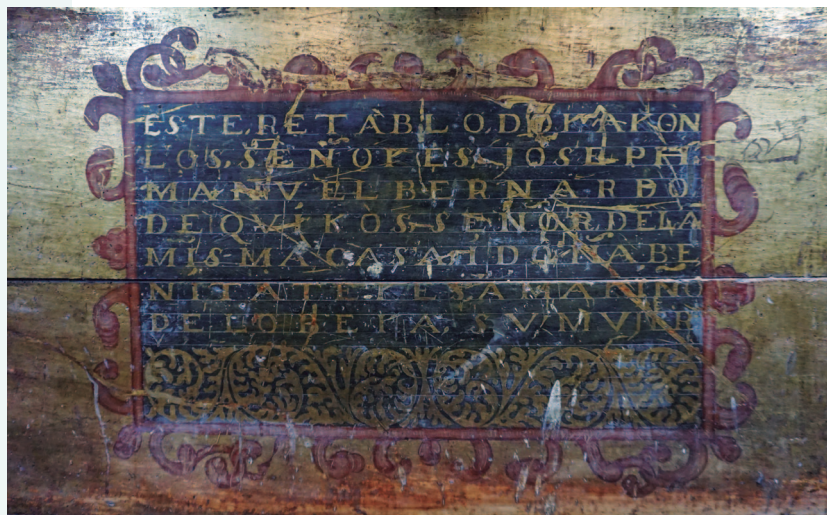 ESTE, RETABLO, DORARON
LOS, SEÑORES, JOSEPH
MANVEL BERNARDO
DE QVIROS SEÑOR DE LA
MISMA CASA I DOÑA BE
NITA TERESA MARIÑO
DE LOBERA, SV MVJER